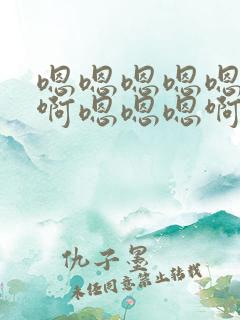 嗯嗯嗯嗯嗯
啊嗯嗯嗯啊
仇子墨
未经同意禁止转载